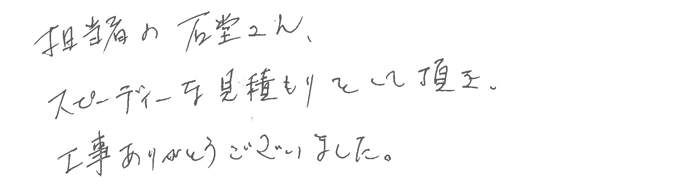 担当者の石堂さん、
スピーディーな見積もりをして頂き、
工事ありがとうございました。